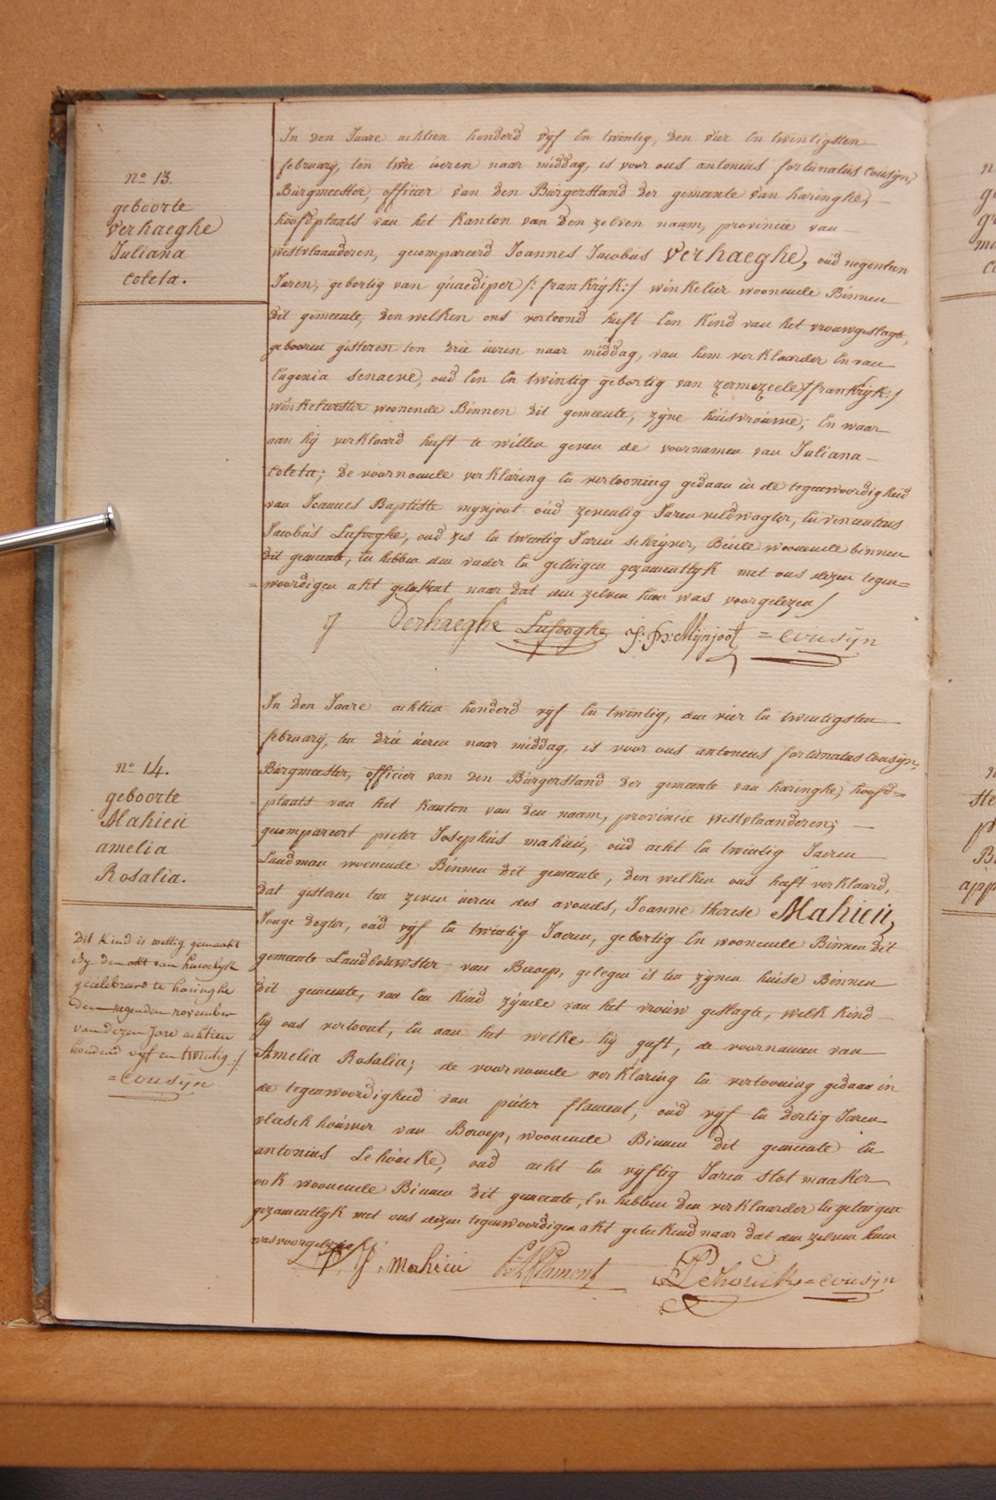 No 13.
geboorte
Verhaeghe
Juliana
Coleta.
In den Jaare achtien honderd vyf en twintig, den vier en twintigsten
february, ten twee ueren naar middag, is voor ons antonius fortunatus Cousyn,
Burgmeester, officier van den Burgerstand der gemeente van haringhe,
hoofdplaats van het Kanton van den zelven naam, provincie van
westvlaanderen, gecompareerd Joannes Jacobus Verhaeghe, oud negentien
Jaren, gebortig van quaediper /: frankryk:/ winkelier woonende Binnen
dit gemeente, den welken ons vertoond heeft Een Kind van het vrouwgeslagt,
gebooren gisteren ten drie ueren naar middag, van hem verklaarder En van
Eugenia Senaeve, oud Een En twintig gebortig van zermezeele /: frankryk:/
winkelwester woonende Binnen dit gemeente, zyne huisvrouwe, En waar
aan hy verklaard heeft te willen geven de voornamen van Juliana
Coleta; de voornoemde verklaring En vertooning gedaan in de tegenwoordigheid
van Joannes Baptiste mynjoot oud zeventig Jaren veldwagter, En vincentius
Jacobus Lafooghe, oud zes En twintig Jaren schryver, Beide woonende binnen
dit gemeente, En hebben den vader En getuigen gezamentlyk met ons dezen tegen=
woordigen akt geteekent naar dat den zelven hun was voorgelezen /
J Verhaeghe Lafooghe J: B: Mynjoot = Cousyn
No 14.
geboorte
Mahieu
amelia
Rosalia.
In den Jaare achtien honderd vyf En twintig, den vier En twintigsten
february, ten drie ueren naar middag, is voor ons antonius fortunatus Cousyn,
Burgmeester, officier van den Burgerstand der gemeente van haringhe, hoofd=
plaats van het Kanton van den naam, provincie westvlaanderen,
gecompareert pieter Josephus mahieu, oud acht En twintig Jaeren
Landman woonende Binnen dit gemeente, den welken ons heeft verklaard,
dat gisteren ten zeven ueren des avonds, Joanne therese Mahieu,
Jonge dogter, oud vyf En twintig Jaeren, gebortig En woonende Binnen dit
gemeente Landbouwster van Beroep, gelegen is ten zynen huise Binnen
dit gemeente, van Een Kind zynde van het vrouw geslagte, welk Kind
hy ons vertoont, En aan het welke hy geeft, de voornamen van
Amelia Rosalia; de voornoemde verklaring En vertooning gedaan in
de tegenwoordigheid van pieter flament, oud vyf En dertig Jaren
vleeschhouwer van Beroep, woonende Binnen dit gemeente En
antonius Lehoucke, oud acht En vyftig Jaren slotmaaker
ook woonende Binnen dit gemeente, En hebben den verklaarder En getuigen
gezamentlyk met ons dezen tegenwoordigen akt geteekend naar dat den zelven hun
was voorgelezen
Dit Kind is wettig gemaakt
by den akt van huwelyk
gecelebreerd te haringhe
den negenden november
van dezen Jare achtien
honderd vyf en twintig./
= Cousyn
P. J. Mahieu Flament Lehoucke = Cousyn